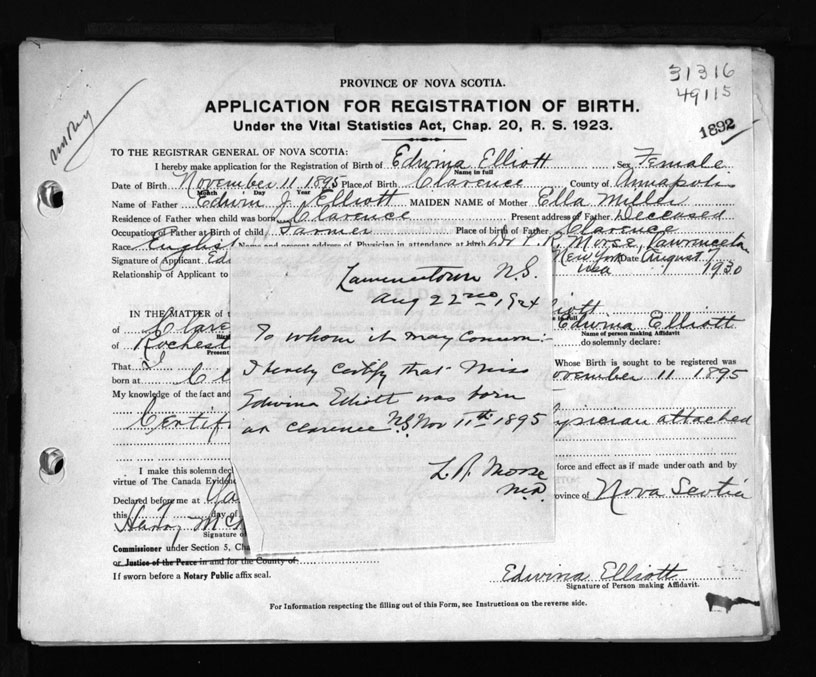 31316
49115
PROVINCE OF NOVA SCOTIA.
APPLICATION FOR REGISTRATION OF BIRTH.
Under the Vital Statistics Act, Chap. 20, R. S. 1923.
1892
TO THE REGISTRAR GENERAL OF NOVA SCOTIA:
I hereby make application for the Registration of Birth of Edwina Elliott Sex Female
Name in full
Date of Birth November 11 1895 Place of Birth Clarence County of Annapolis
Month Day Year
Name of Father Edwin J. Elliott MAIDEN NAME of Mother Ella Miller
Residence of Father when child was born Clarence Present address of Father Deceased
Occupation of Father at Birth of child Farmer Place of birth of Father Clarence
Race English Name and present address of Physician in attendance at birth Dr L. R. Morse, Lawrencetown
Signature of Applicant Ed New York Date August 7
Relationship of Applicant to USA 1930
Lawrencetown N.S.
Aug 22nd 1924
To whom it may concern:-
I hereby certify that Miss
Edwina Elliott was born
at Clarence N.S. Nov 11th 1895
L. R. Morse
M.D.
IN THE MATTER of t liott
of Clare Edwina Elliott
Name of person making Affidavit
of Rochest do solemnly declare:
Present
That I Whose Birth is sought to be registered was
born at Cl ovember 11 1895
My knowledge of the fact and
Certifi ysician attached
I make this solemn decl force and effect as if made under oath and by
virtue of The Canada Evidenc
Declared before me at Ya rovince of Nova Scotia
this day of
Harry McK
Signature of
Commissioner under Section 5, Cha
or Justice of the Peace in and for the County of
If sworn before a Notary Public affix seal.
Edwina Elliott
Signature of Person making Affidavit.
For Information respecting the filling out of this Form, see Instructions on the reverse side.